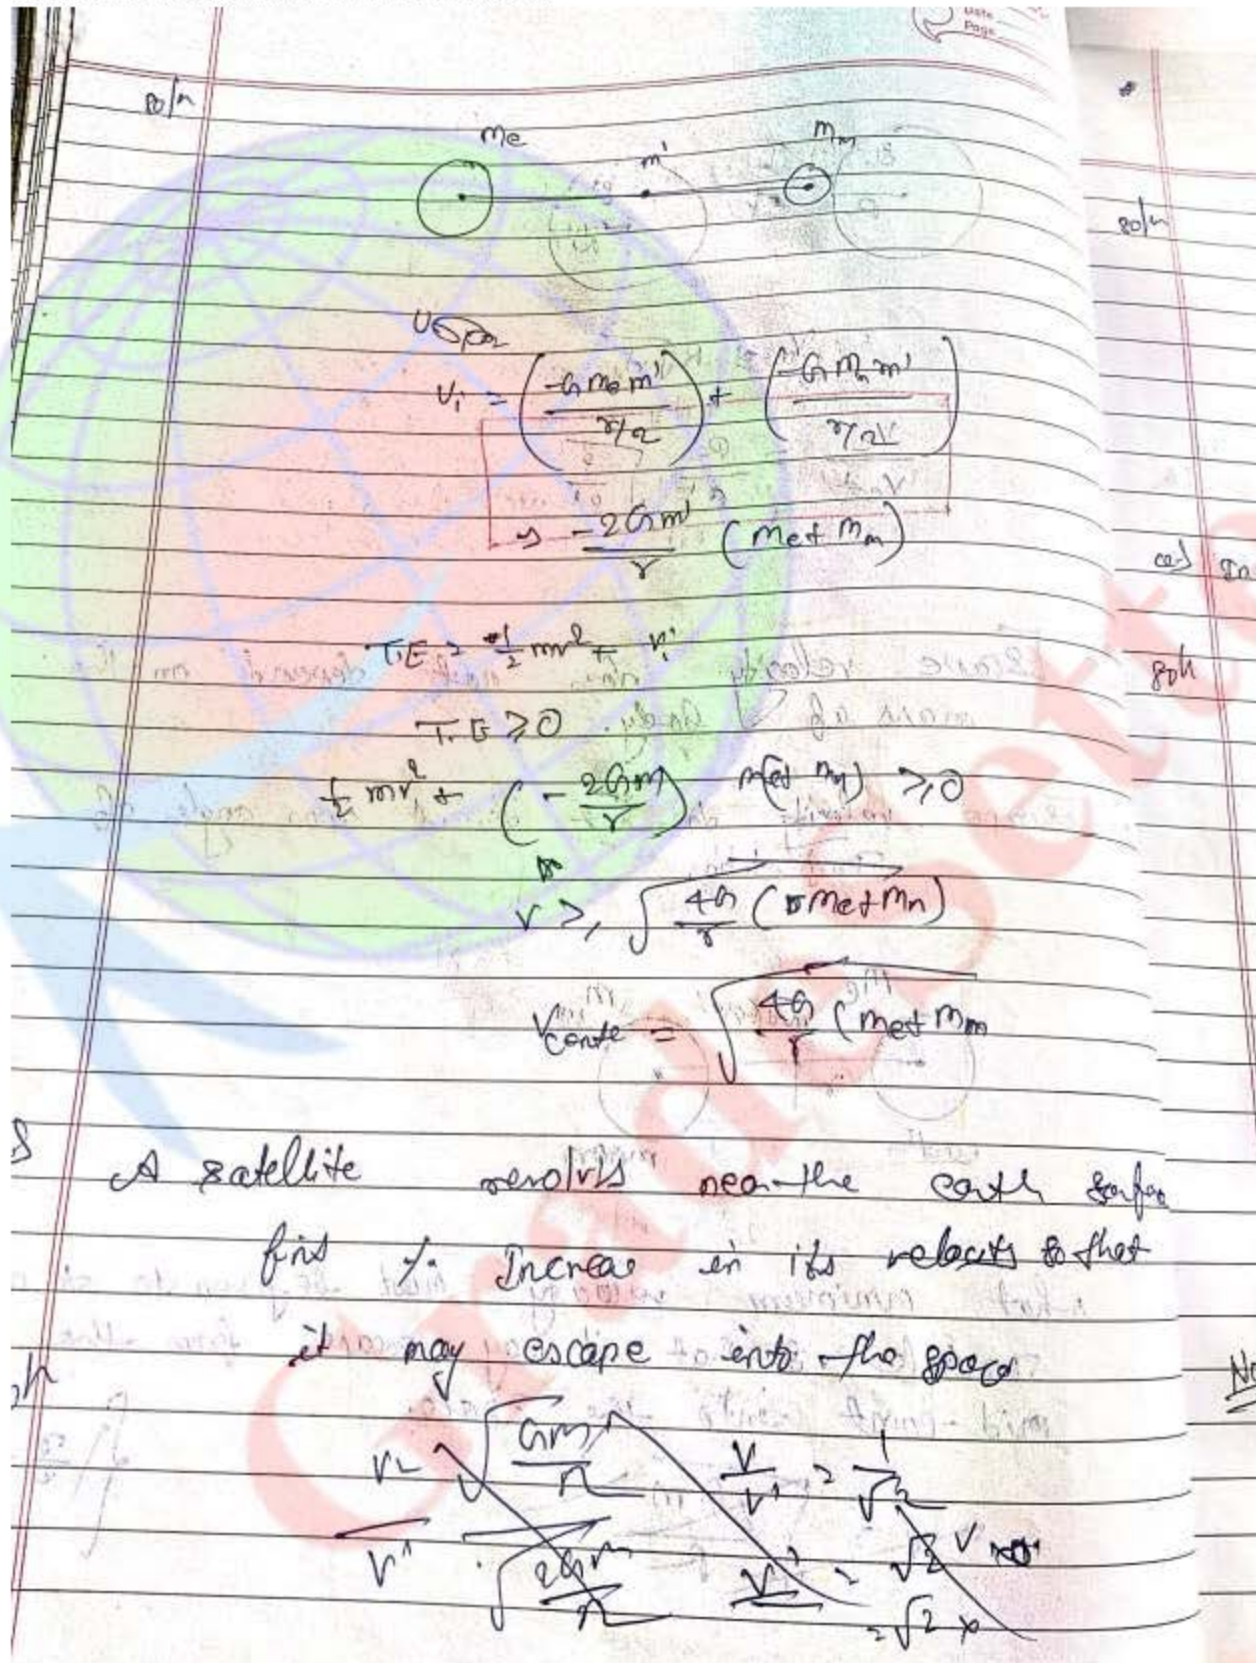 Date
Page
soln
me m' mm
soln
Ui = (-Gmem' / r/2) + (-Gmmm' / r/2)
⇒ -2Gm' / r (me + mm)
T.E = 1/2 mv² + Ui
T.E ≥ 0
1/2 mv² + (- 2Gm / r) (me + mm) ≥ 0
v ≥ √ 4G / r (me + mm)
= √ 4G / r (me + mm
A satellite revolvis near the earth
find % Increae in its velocity so that
it may escape into the space
v = √ Gm / r v / v' = 1 / √2
v' = √ 2Gm / r v' = √2 v
= √2 ×
GradeSetter